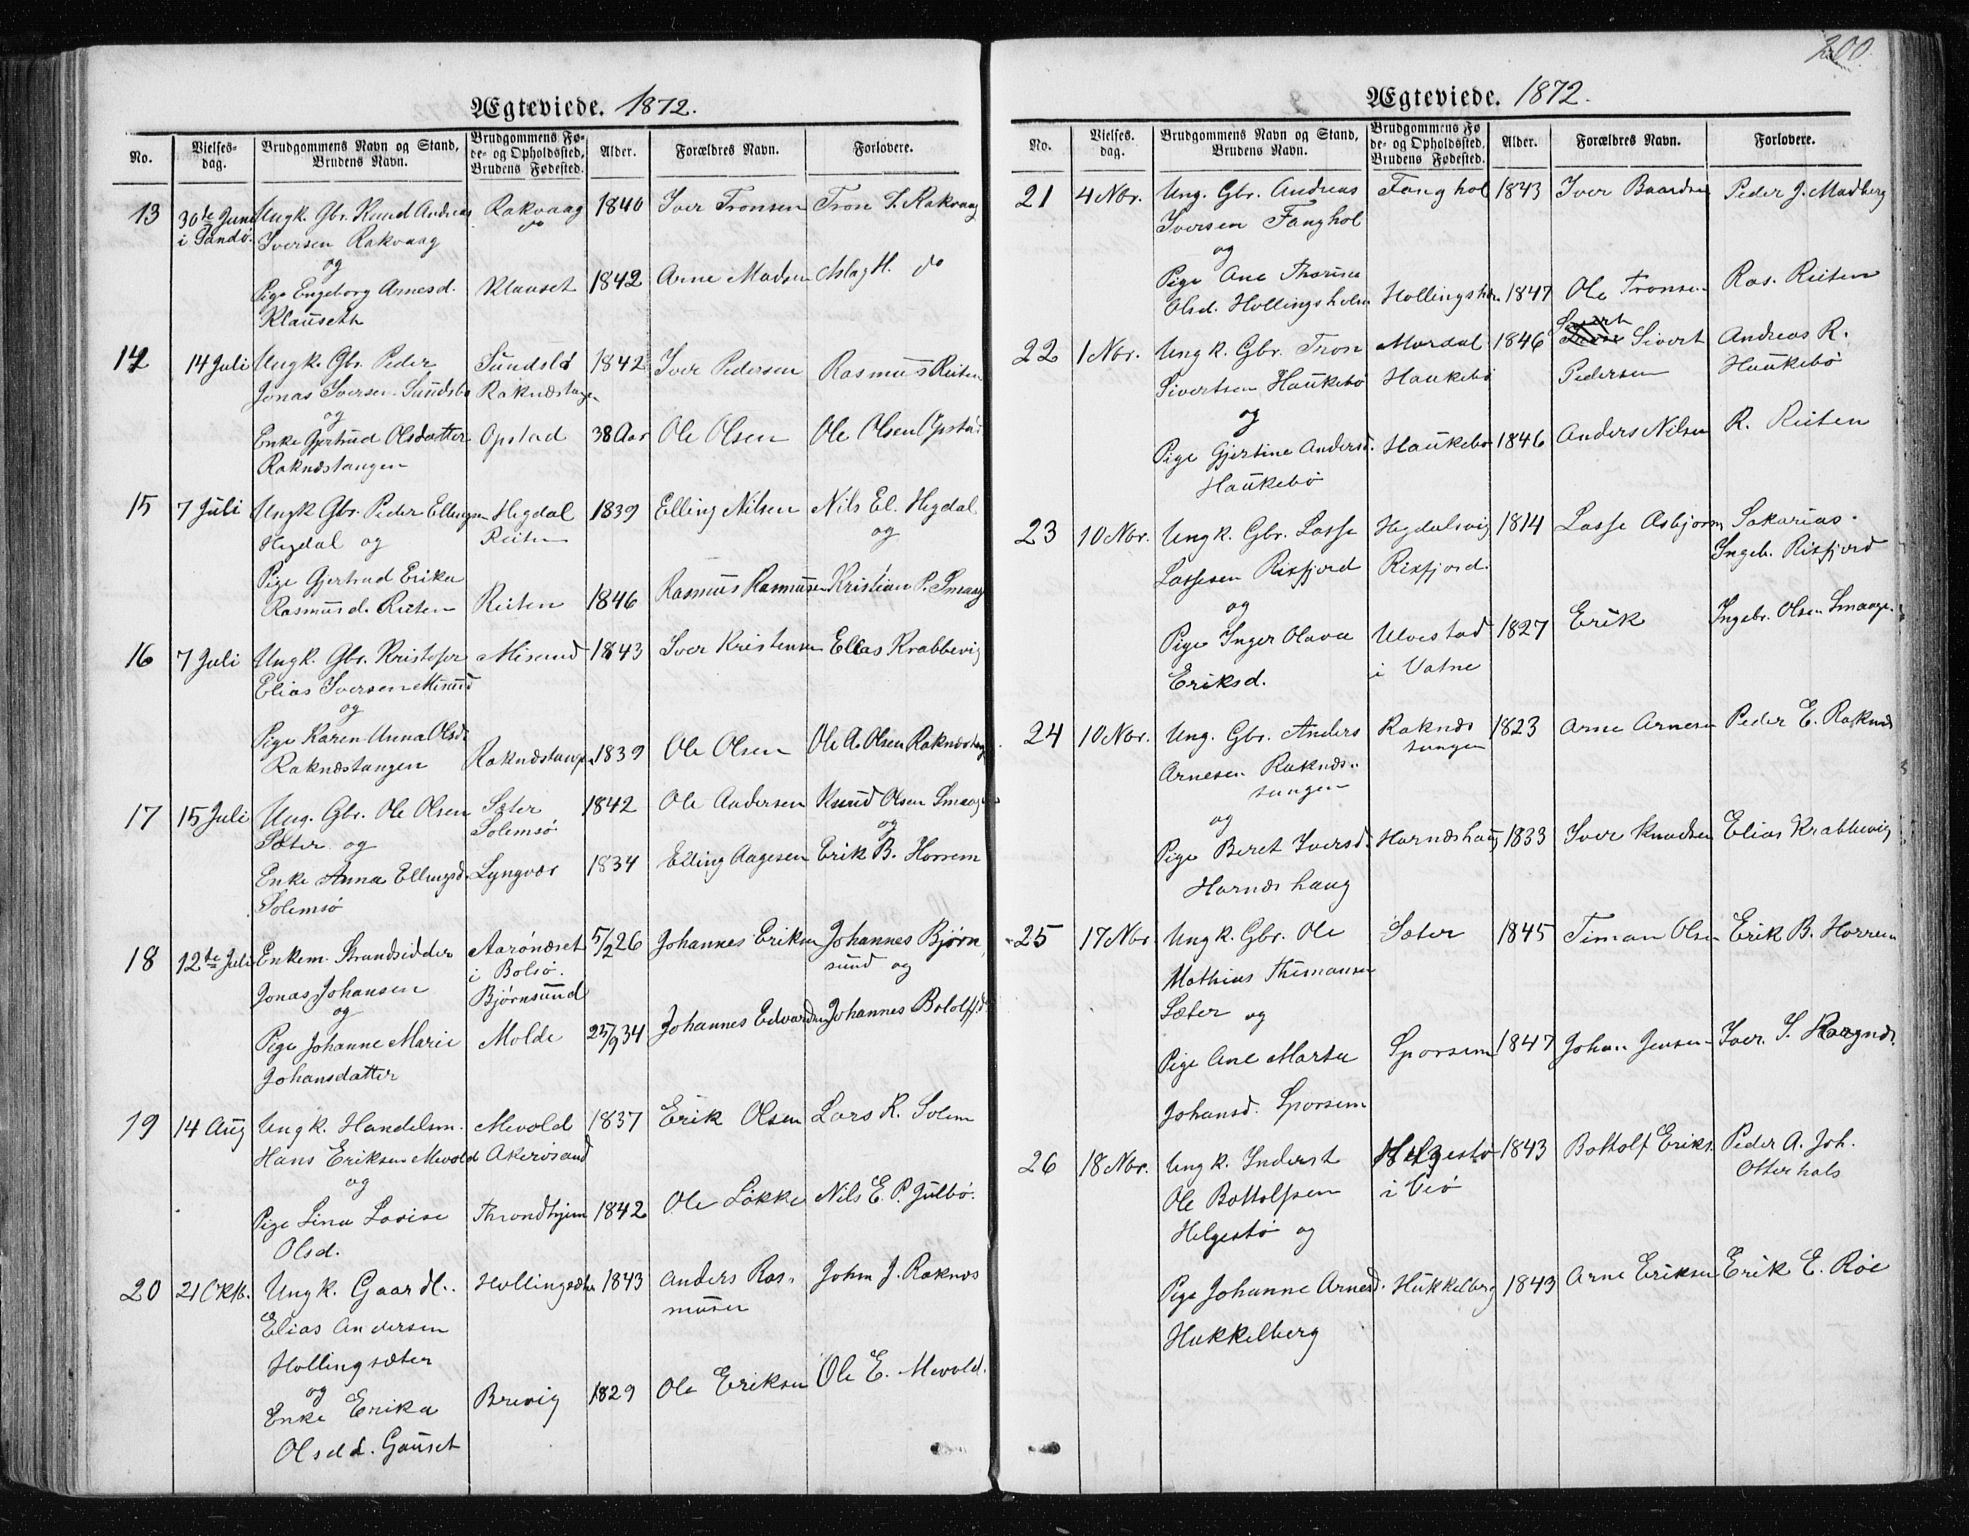 Ægteviede. 1872.
No. | Vielses-dag. | Brudgommens Navn og Stand, Brudens Navn. | Brudgommens Fø-de- og Opholdssted, Brudens Fødested. | Alder. | Forældres Navn. | Forlovere.
13 | 30te Juni | Ungk. Gbr. Knud Andreas | Rakvaag | 1840 | Iver Tronsen | Tron I. Rakvaag
i Sandø. | Iversen Rakvaag | do
og
Pige Engeborg Arnesd. | Klauset | 1842 | Arne Madsen | Aslag H. do
Klauseth
14 | 14 Juli | Ungk. Gbr. Peder | Sundsbø | 1842 | Iver Pedersen | Rasmus Reiten
Jonas Iversen Sundsbø | Raknæstangen
og
Enke Gjertrud Olsdatter | Opstad | 38 Aar | Ole Olsen | Ole Olsen Opstad
Raknæstangen
15 | 7 Juli | Ungk Gbr. Peder Ellingsen | Hegdal | 1839 | Elling Nilsen | Nils El. Hegdal
Hegdal og | Reiten | og
Pige Gjertrud Erika
Rasmusd. Reiten | Reiten | 1846 | Rasmus Rasmusen | Kristian P. Smaag
16 | 7 Juli | Ungk. Gbr. Kristofer | Misund | 1843 | Iver Kristensen | Elias Krabbevig
Elias Iversen Misund
og
Pige Karen Anna Olsd. | Raknæstangen | 1839 | Ole Olsen | Ole A. Olsen Raknæstang
Raknæstangen
17 | 15 Juli | Ung. Gbr. Ole Olsen | Sæter | 1842 | Ole Andersen | Knud Olsen Smaage
Sæter og | Solemsø | og
Enke Anna Ellingsd. | Lyngvær | 1834 | Elling Aagesen | Erik B. Horrem
Solemsø
18 | 12te Juli | Enkem. Strandsidder | Aarønæset | 5/2 26 | Johannes Eriksen | Johannes Bjørn
i Bolsø. | sund og
Jonas Johansen | Bjørnsund
og
Pige Johanne Marie | Molde | 25/9 34 | Johannes Edvardsen | Johannes
Johansdatter
19 | 14 Aug | Ungk. Handelsm. | Mevold | 1837 | Erik Olsen | Lars R. Solem
Hans Eriksen Mevold | Akerøsund
og
Pige Lina Lovise | Throndhjem | 1842 | Ole Løkke | Nils E. P. Julbø.
Olsd.
20 | 21 Oktb. | Ungk. Gaardl. | Hollingsæter | 1843 | Anders Ras- | John J. Raknæs
Elias Andersen | musen
Hollingsæter
og
Enke Erika | Brevig | 1829 | Ole Eriksen | Ole E. Mevold.
Olsdd. Gauset
200.
Ægteviede. 1872.
No. | Vielses-dag. | Brudgommens Navn og Stand, Brudens Navn. | Brudgommens Fø-de- og Opholdssted, Brudens Fødested. | Alder. | Forældres Navn. | Forlovere.
21 | 4 Nov. | Ung. Gbr. Andreas | Fanghol | 1843 | Iver Baardsen | Peder J. Madberg
Iversen Fanghol
og
Pige Ane Thorine
Olsd. Hollingsholm | Hollingsholm | 1847 | Ole Tronsen | Ras. Reiten
22 | 1 Nov. | Ungk. Gbr. Tron | Mordal | 1846 | Sivert | Andreas R.
Sivertsen Haukebø | Haukebø | Pedersen | Haukebø
og
Pige Gjertine Andersd. | Haukebø | 1846 | Anders Nilsen | R. Reiten
Haukebø
23 | 10 Nov. | Ungk. Gbr. Lasse | Hegdalsvig | 1814 | Lasse Asbjørn | Sakarias
Lassesen Rixfjord | Rixfjord. | Ingeb. Rixfjord
og
Pige Inger Olava | Ulvestad | 1827 | Erik | Ingebr. Olsen Smaage
Eriksd. | i Vatne
24 | 10 Nov. | Ung. Gbr. Anders | Raknæs | 1823 | Arne Arnesen | Peder E. Raknæs
Arnesen Raknæs- | tangen
tangen
og
Pige Beret Iversd. | Harnæshaug | 1833 | Iver Knudsen | Elias Krabbevig
Harnæshaug
25 | 17 Nov | Ungk. Gbr. Ole | Sæter | 1845 | Timan Olsen | Erik B. Horrem
Mathias Thimansen
Sæter og
Pige Ane Marta | Sporsem | 1847 | Johan Jensen | Iver. I.
Johansd. Sporsem
26 | 18 Nov. | Ungk. Inderst | Helgestø | 1843 | Bottolf Eriks. | Peder A. Joh.
Ole Bottolfsen | i Veø | Otterhals
Helgestø og
Pige Johanne Arnesd. | Hukkelberg | 1843 | Arne Eriksen | Erik E. Røe
Hukkelberg